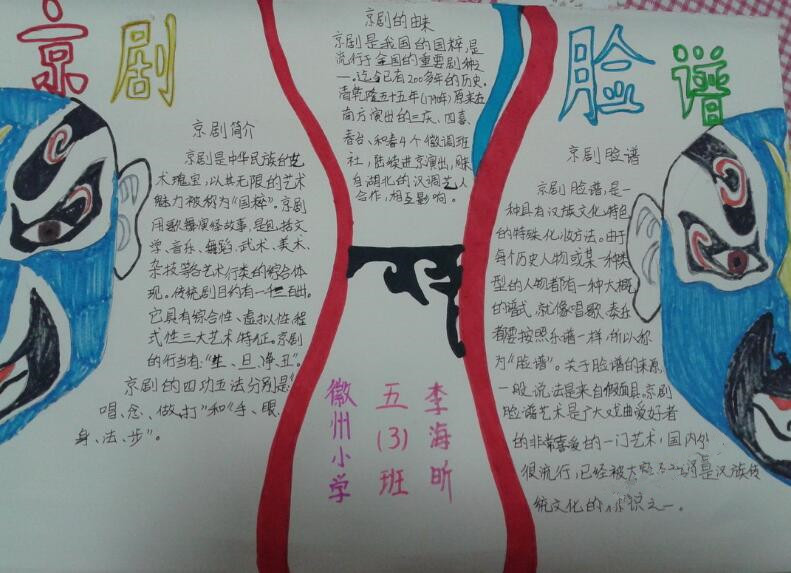 京剧
脸谱
京剧简介
京剧是中华民族的艺
术瑰宝,以其无限的艺术
魅力被称为“国粹”。京剧
用歌舞演绎故事,是包括文
学、音乐、舞蹈、武术、美术、
杂技等各艺术行类的综合体
现。传统剧目约有一千三百出。
它具有综合性、虚拟性、程
式性三大艺术特征。京剧
的行当有:“生、旦、净、丑”。
京剧的四功五法分别是“
唱、念、做、打”和“手、眼、
身、法、步”。
京剧的由来
京剧是我国的国粹,是
流行于全国的重要剧种之
一。迄今已有200多年的历史。
清乾隆五十五年(1790年)原来在
南方演出的三庆、四喜、
春台、和春4个徽调班
社,陆续进京演出,同来
自湖北的汉调艺人
合作,相互影响。
李海昕
五(3)班
徽州小学
京剧脸谱
京剧脸谱,是一
种具有汉族文化特色
的特殊化妆方法。由于
每个历史人物或某一种类
型的人物都有一种大概
的谱式,就像唱歌、奏乐
都要按照乐谱一样,所以称
为“脸谱”。关于脸谱的来源,
一般说法是来自假面具。京剧
脸谱艺术是广大戏曲爱好者
的非常喜爱的一门艺术,国内外
很流行,已经被大 是汉族传
统文化的 识之一。